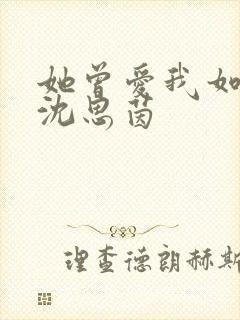 她曾愛我如
沈思茵
理查德朗赫斯